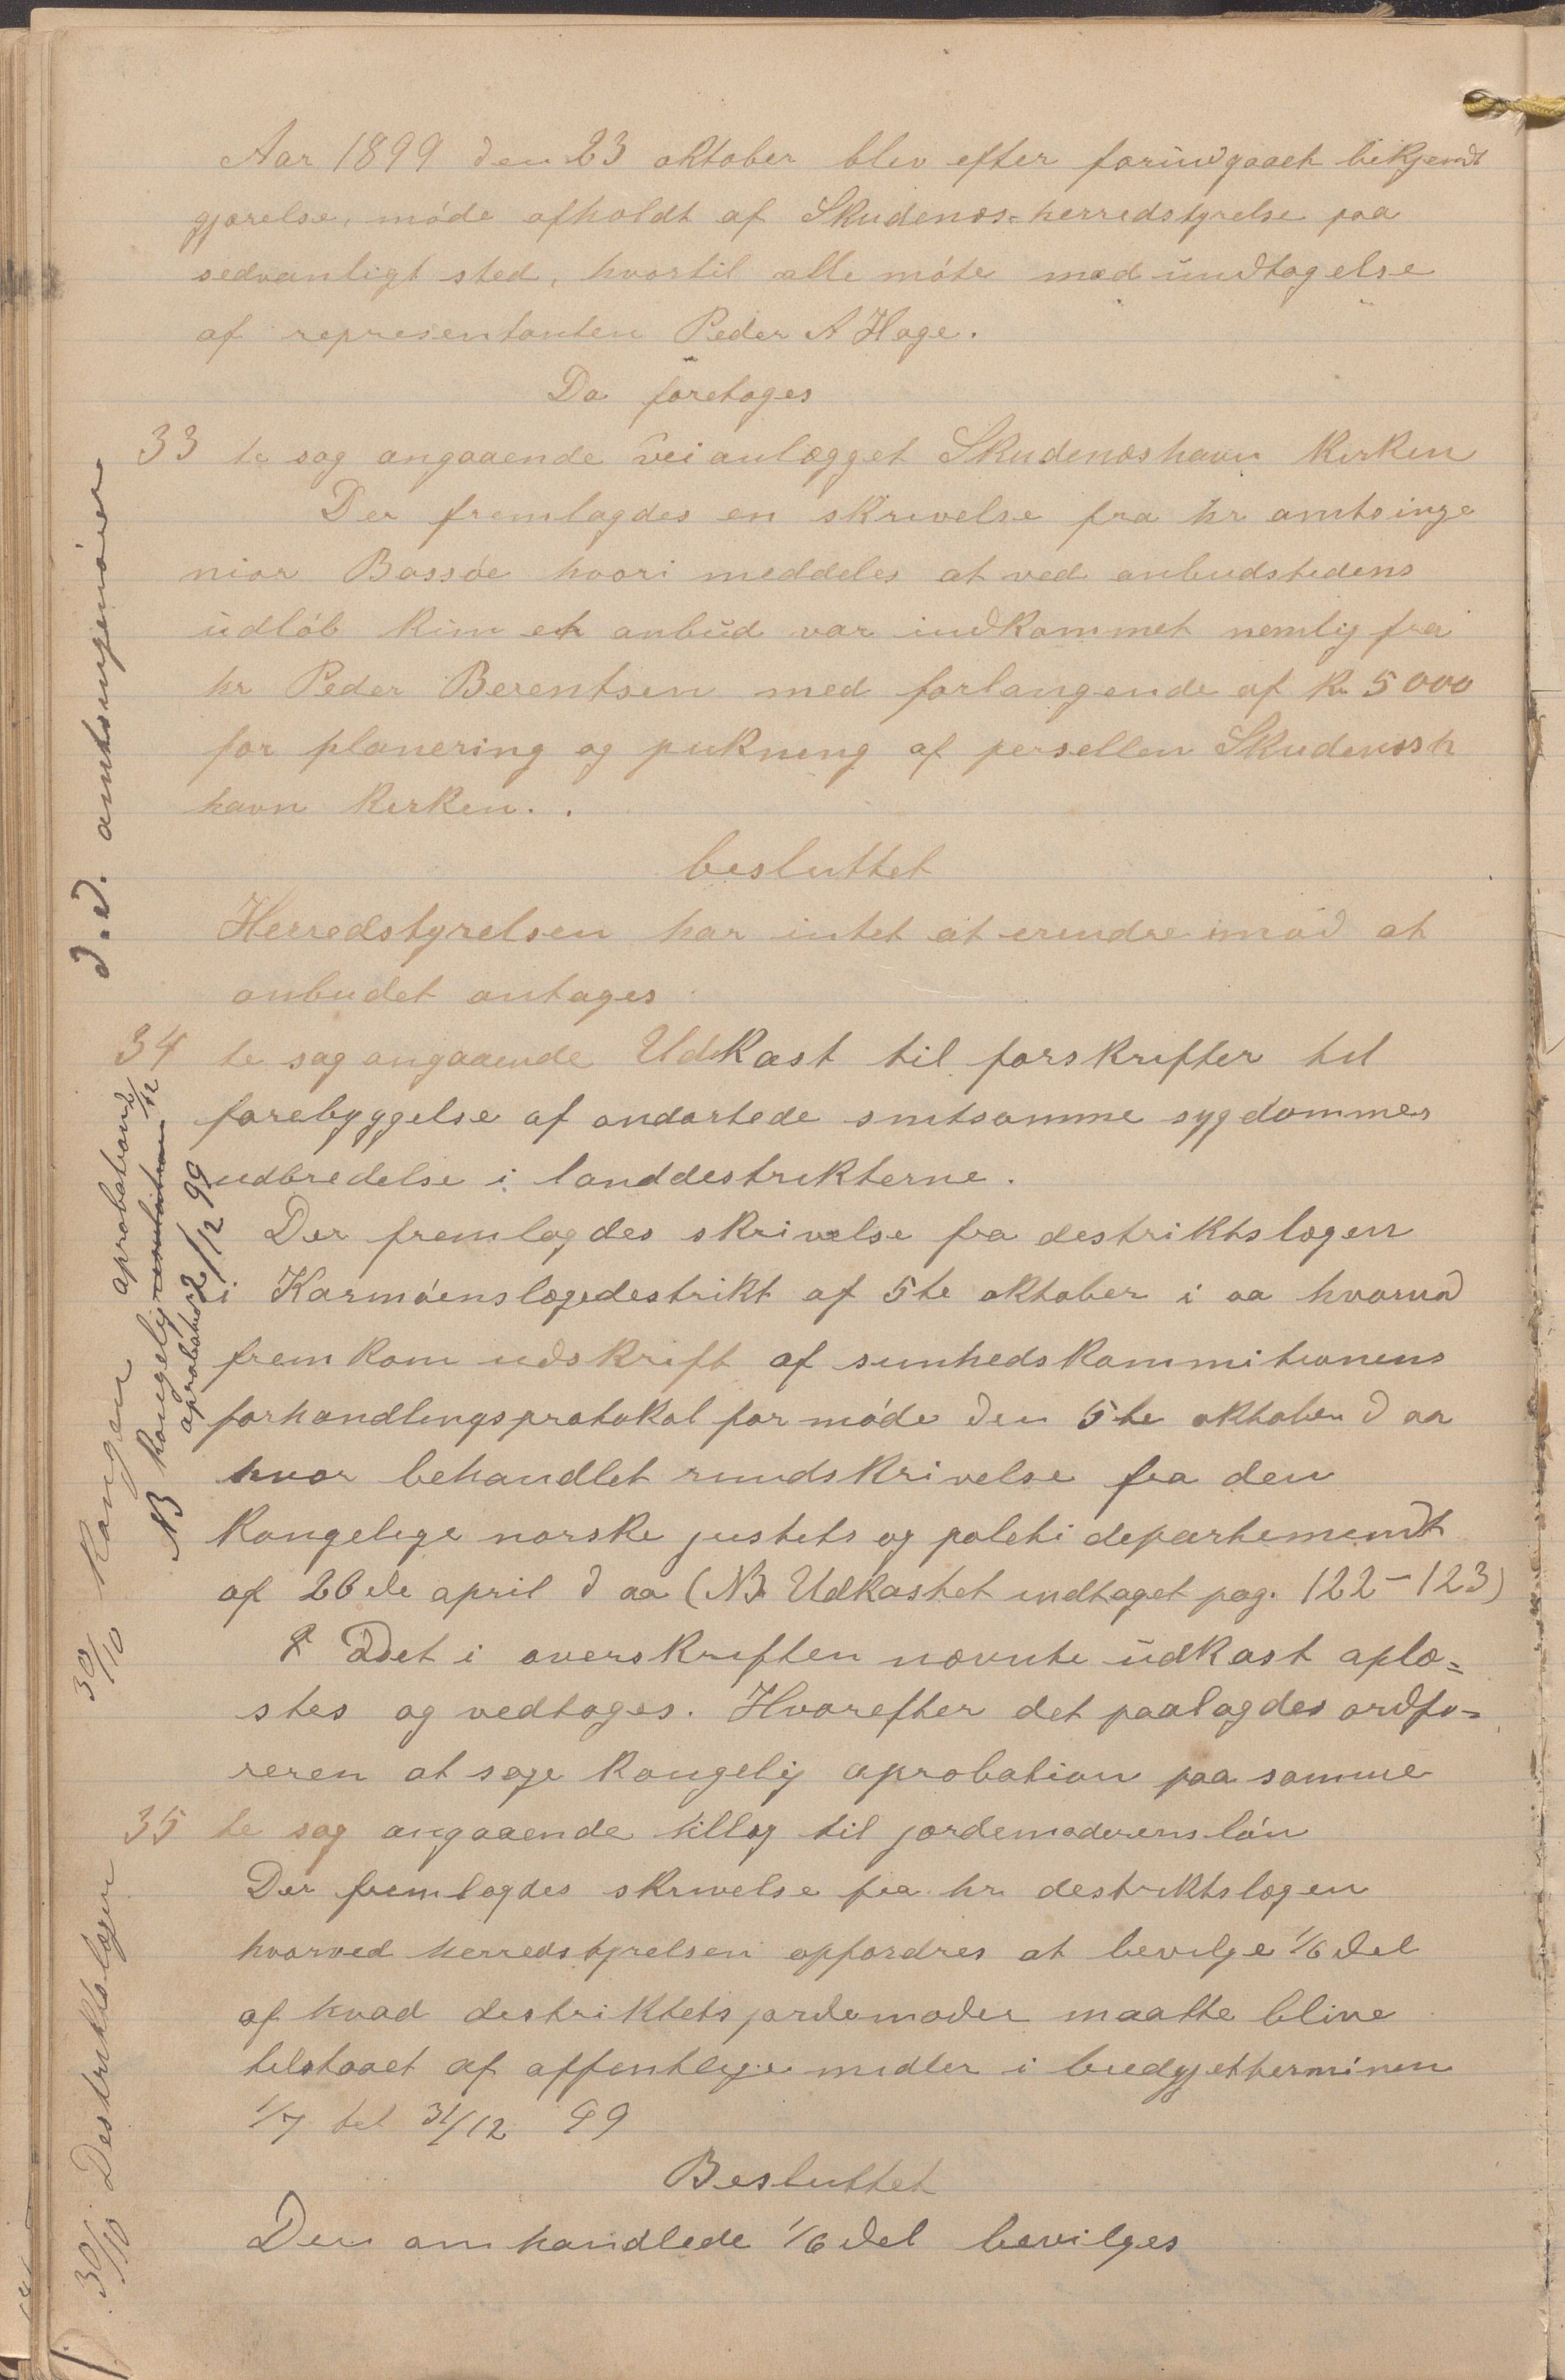 Aar 1899 den 23 oktober blev efter forudgaaet bekjendt
gjørelse, møde afholdt af Skudenæs-herredstyrelse paa
sedvanligt sted, hvortil alle møte med undtagelse
af representanten Peder A Hage.
Da foretoges
33 te sag angaaende veianlægget Skudenæshavn Kirken
Der fremlagdes en skrivelse fra hr amtsinge
niør Bassøe hvori meddeles at ved anbudstidens
udløb kun et anbud var indkommet nemlig fra
hr Peder Berentsen med forlangende af kr 5000
for planering og pukning af persellen Skudenæsh
havn Kirken..
besluttet
Herredstyrelsen har intet at erendre imod at
anbudet antages
d.d. amtsingeniøren
34 te sag angaaende Udkast til forskrifter til
forebyggelse af ondartede smitsomme sygdommes
udbredelse i landdestrikterne.
Der fremlagdes skrivelse fra destriktslægen
i Karmøenslægedestrikt af 5te oktober i aa hvorved
fremkom udskrift af sunhedskommitionens
forhandlingsprotokol for møde den 5te oktober d aa
hvor behandlet rundskrivelse fra den
Kongelige norske justets og politi departemendt
af 26de april d aa (NB Udkastet indtaget pag. 122-123)
Det i overskriften nævnte udkast oplæ=
stes og vedtoges. Hvorefter det paalagdes ordfø=
reren at søge Kongelig aprobation paa samme
30/10 Kongen aprobation
NB Kongelig resolution 2/12
aprobation 2/12 99
35 te sag angaaende tillæg til jordemoderens løn
Der fremlagdes skrivelse fra hr destriktslægen
hvorved herredstyrelsen opfordres at bevilge 1/6 del
af hvad destriktets jordemoder maatte blive
tilstaaet af offentlige midler i budgjetterminen
1/7 til 31/12 99
Besluttet
Den omhandlede 1/6 del bevilges
30/10 Destriktslægen